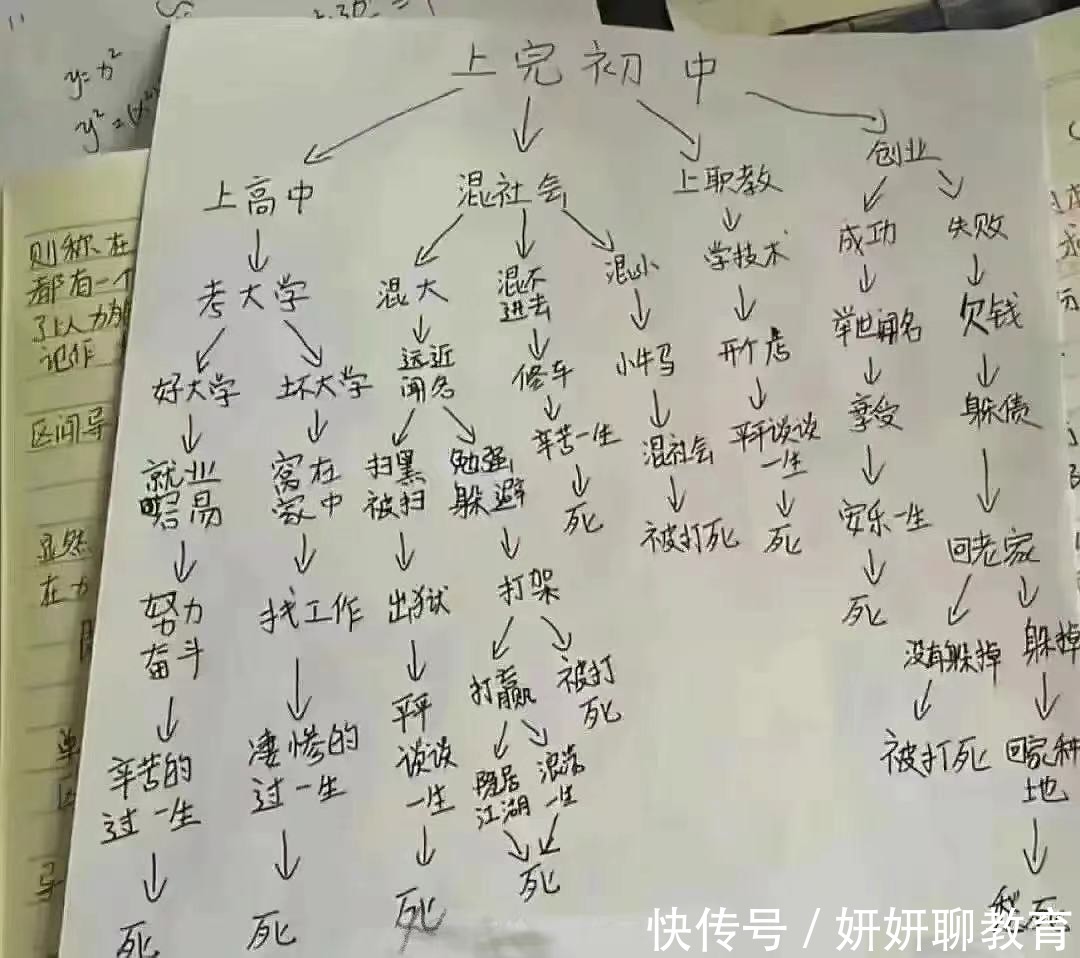 y=x²
y²=
则称在
都有一个
记作
区间导
显然
在
上完初中
上高中
混社会
上职教
创业
考大学
混大
混不
进去
混小
学技术
成功
失败
好大学
坏大学
远近
闻名
修车
小牛马
开个店
举世闻名
欠钱
就业
容易
窝在
家中
扫黑
被扫
勉强
躲避
辛苦一生
混社会
平平谈谈
一生
享受
躲债
死
被打死
死
安乐一生
回老家
努力
奋斗
找工作
出狱
打架
死
没有躲掉
躲掉
平平
谈谈
一生
打赢
被打
死
被打死
回家种
地
辛苦的
过一生
凄惨的
过一生
隐居
江湖
浪荡
一生
死
死
死
死
死
快传号 / 妍妍聊教育